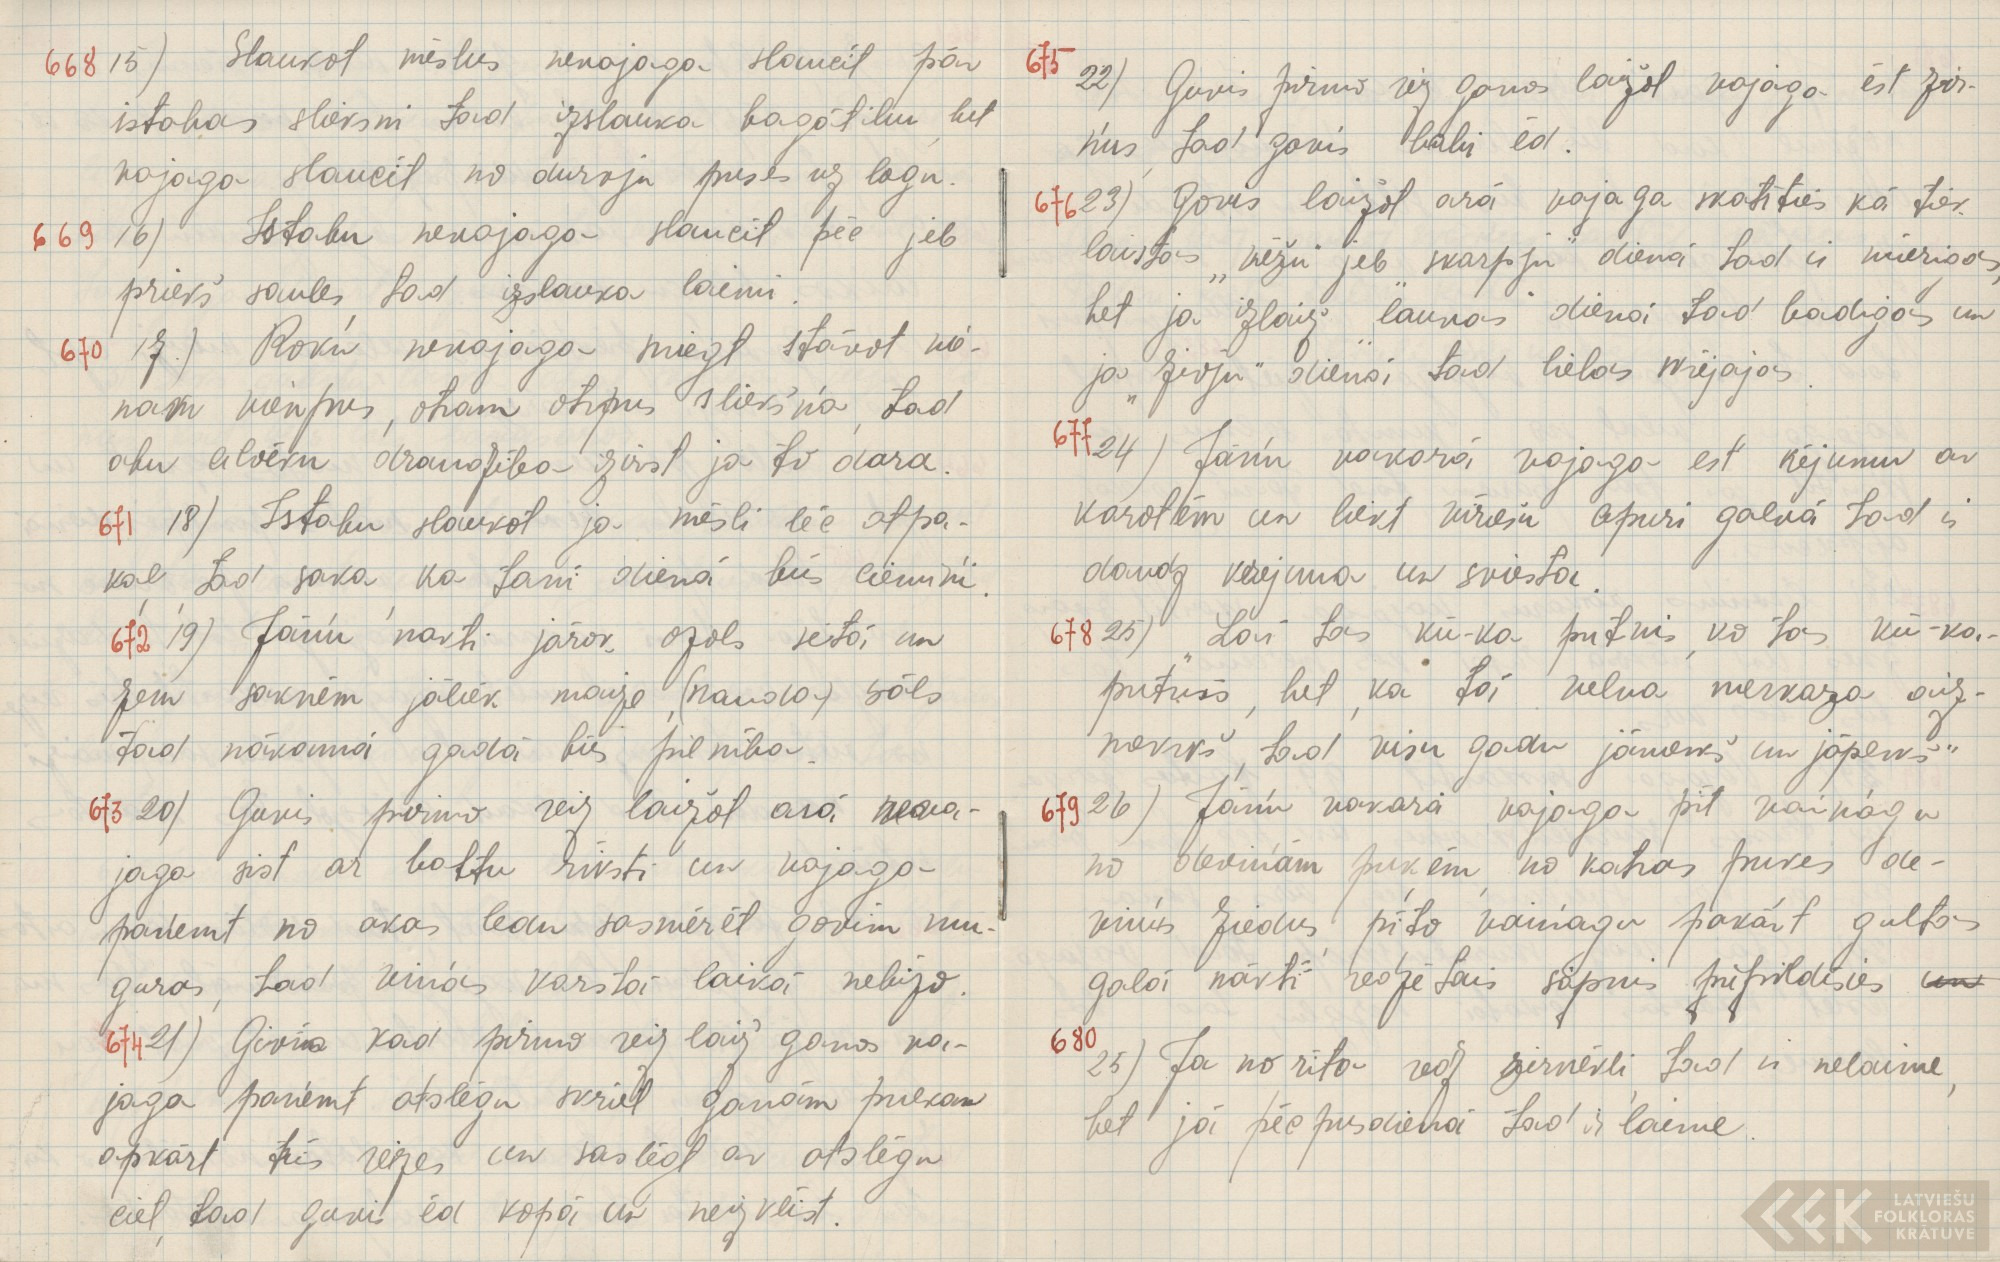 668 15) Slaukot mēslus nevajaga slaucīt pār
istabas slieksni tad izslauka bagātibu, bet
vajaga slaucīt no durvju puses uz logu.
669 16) Istabu nevajaga slaucīt pēc jeb
priekš saules, tad izslauka laimi.
670 17.) Roku nevajaga sniegt stāvot vie-
nam vienpus, otram otrpus slieksńa, tad
abu cilvēku draudzība izirst ja to dara.
671 18) Istabu slaukot ja mēsli lēc atpa-
kaļ, tad saka ka tani dienā būs ciemiņi.
672 19) Jāņu nakti jārok ozols sētāi un
zem saknēm jāliek maize, (nauda) sāls
tad nākamā gadā būs pilnība.
673 20) Guvis pirmo reiz laižot arā neva-
jaga sist ar baltu rīksti un vajaga
paņemt no akas ledu sasmērēt govīm mu-
guras, tad viņas karstā laikā nebizo.
674 21) Guvis kad pirmo reiz laiž ganos va-
jaga paņemt atslēgu skriet ganām pulkam
apkārt trīs reizes un saslēgt ar atslēgu
ciet, tad guvis ēd kopā un neizklīst.
675 22) Guvis pirmo reiz ganos laižot vajaga ēst zir-
ņus, tad govis labi ēd.
676 23) Govis laižot arā vajaga skatīties kā tiek
laistas „vēžu" jeb „skarpju" dienā tad ir mierigas,
bet ja izlaiž „laukas" dienā tad badigas un
ja „zivju" dienāi tad lielas skrējajas.
677 24) Jāņu vakarā vajaga est ķējumu ar
karotēm un likt vīriešu cepuri galvā tad ir
daudz krejuma un sviesta.
678 25) „Lai tas kū-ka putnis, ko tas kū-ka-
putniš, bet, ka tāi velna merkaza aiz-
merkš, tad visu gadu jāmerkš un jāperkš"
679 26) Jāņu vakarā vajaga pīt vaiņagu
no deviņām puķēm, no katras puķes de-
viņus ziedus, pīto vaiņagu pakārt gultas
galā naktī redzētais sapnis piepildīsies un
680 25) Ja no rīta redz zirnekli, tad ir nelaime,
bet jā pēcpusdienā tad ir laime.
LATVIEŠU
FOLKLORAS
KRĀTUVE